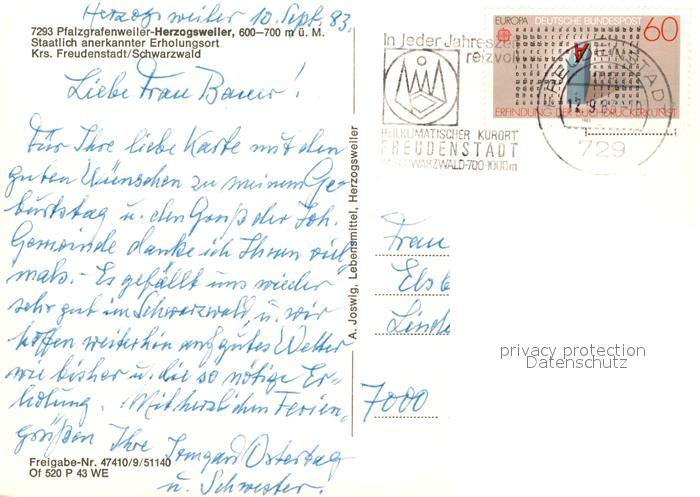 Herzogsweiler 10. Sept. 83.
7293 Pfalzgrafenweiler-Herzogsweiler, 600–700 m ü. M.
Staatlich anerkannter Erholungsort
Krs. Freudenstadt/Schwarzwald
Liebe Frau Bauer!
Für Ihre liebe Karte mit den
guten Wünschen zu meinem Ge-
burtstag u. den Gruß der Joh.
Gemeinde danke ich Ihnen viel
mals. - Es gefällt uns wieder
sehr gut im Schwarzwald, u. wir
hoffen weiterhin auf gutes Wetter
wie bisher u. die so nötige Er-
holung. Mit herzlichen Ferien-
grüßen Ihre Irmgard Ostertag
u. Schwester.
Freigabe-Nr. 47410/9/51140
Of 520 P 43 WE
A. Joswig, Lebensmittel, Herzogsweiler
In jeder Jahresze
reizvol
HEILKLIMATISCHER KURORT
FREUDENSTADT
SCHWARZWALD·700-1000m
EUROPA DEUTSCHE BUNDESPOST 60
ERFINDUNG DER BUCHDRUCKERKUNST
FREUDENSTADT
12.9.8
729
Frau
Els
Linde
7000
privacy protection
Datenschutz